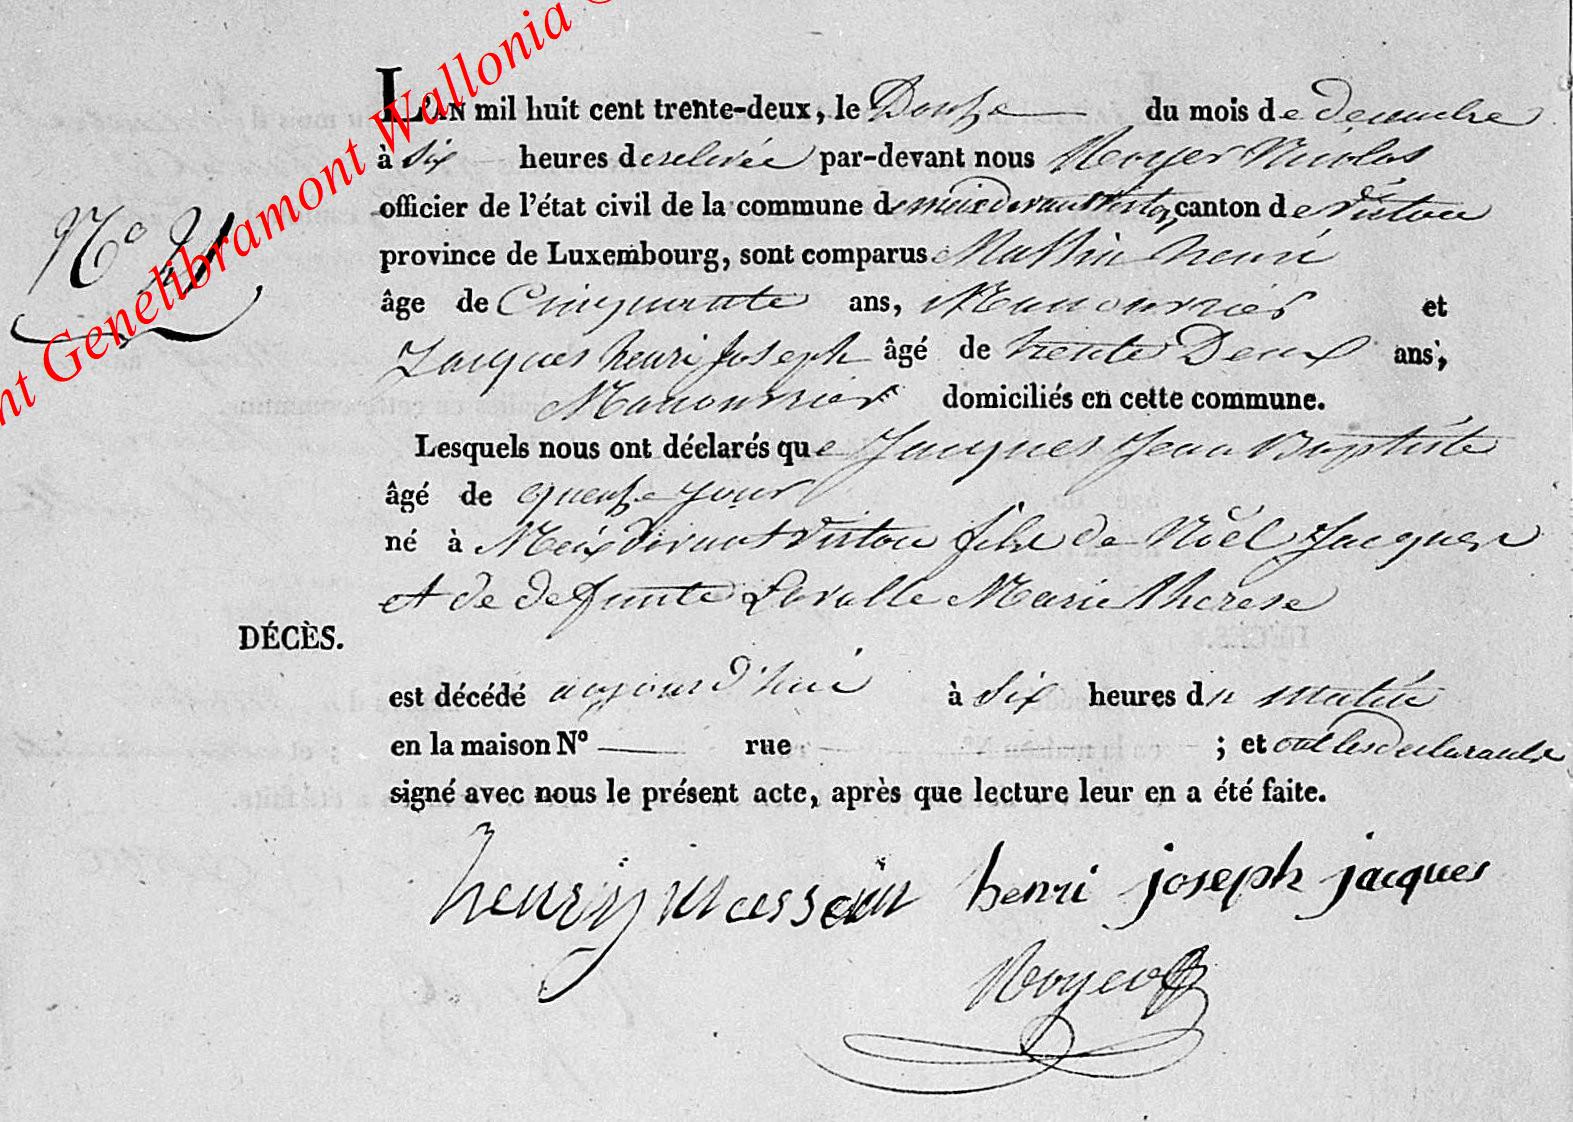 L'AN mil huit cent trente-deux, le Douze du mois de decembre
à six heures de relevée par-devant nous Royer Nicolas
officier de l'état civil de la commune de meix devant virton canton de virton
province de Luxembourg, sont comparus henri
âge de Cinquante ans, Manouvrier et
Jacques henri joseph âgé de trente Deux ans,
Manouvrier domiciliés en cette commune.
Lesquels nous ont déclarés que Jacques Jean Baptiste
âgé de quenze jour
né à Meix devant virton fils de Noël Jacques
et de defunte Lavalle Marie therese
DÉCÈS.
est décédé aujourd'hui à six heures du matin
en la maison N° rue ; et ont les declarants
signé avec nous le présent acte, après que lecture leur en a été faite.
henri joseph jacques
Royer
N°
Genelibramont Wallonia